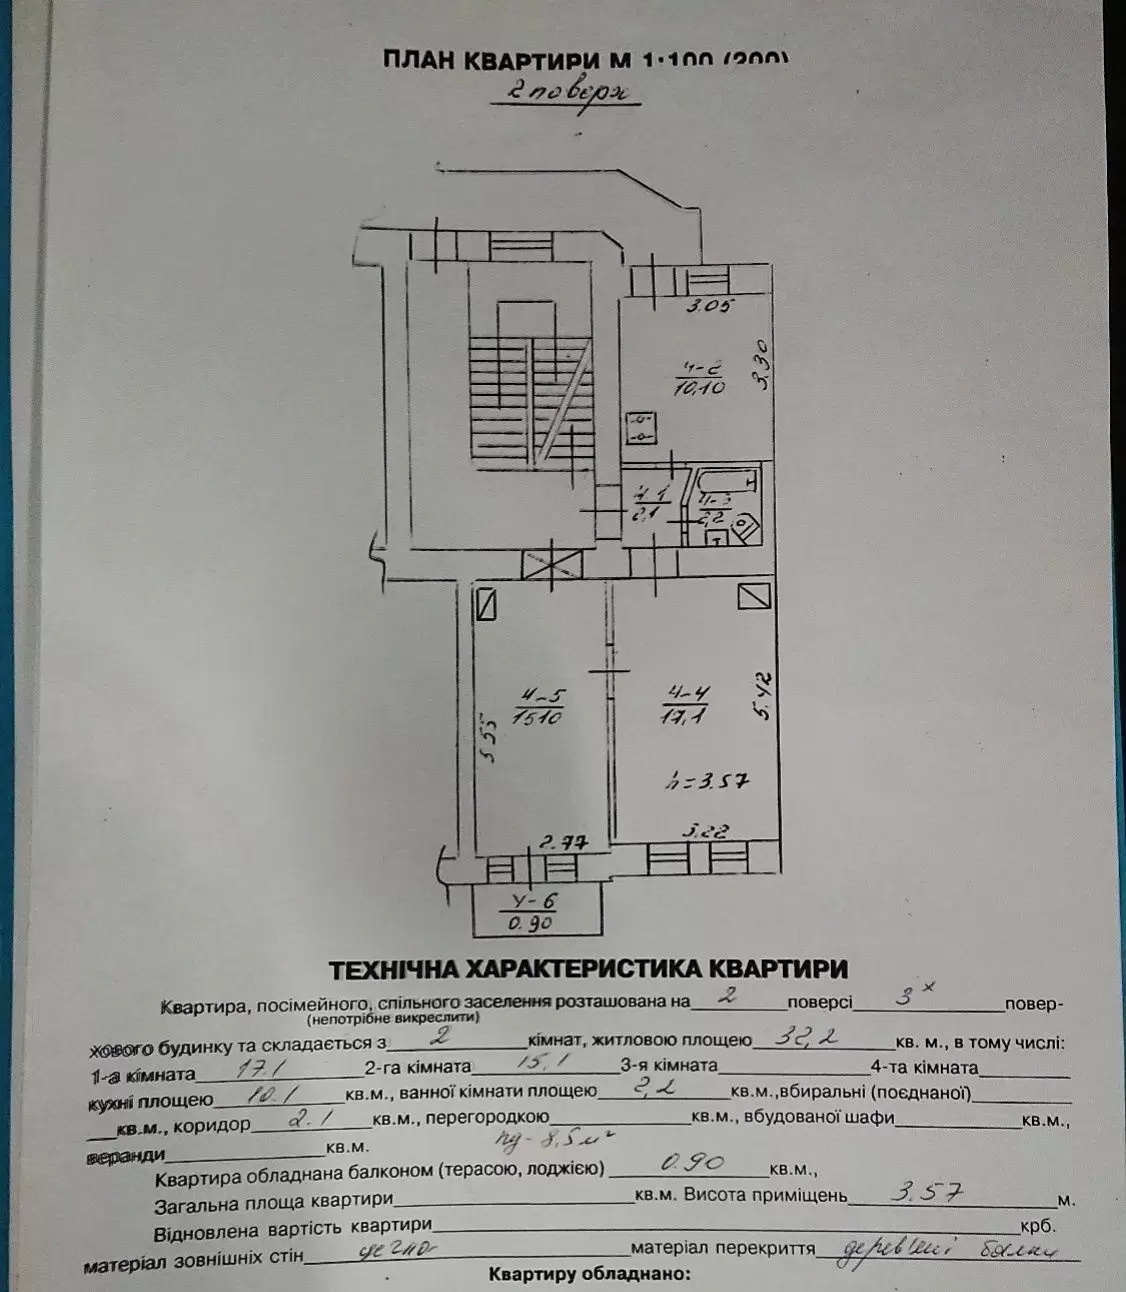 ПЛАН КВАРТИРИ М 1:100 (200)
2 поверх
3.05
3.30
4-2
10,10
4-1
2,1
4-3
2,2
4-5
15,10
4-4
17,1
5.55
5.42
h=3.57
2.77
3.22
4-6
0.90
ТЕХНІЧНА ХАРАКТЕРИСТИКА КВАРТИРИ
Квартира, посімейного, спільного заселення розташована на 2 поверсі 3х повер-
(непотрібне викреслити)
хового будинку та складається з 2 кімнат, житловою площею 32,2 кв. м., в тому числі:
1-а кімната 17.1 2-га кімната 15,1 3-я кімната 4-та кімната
кухні площею 10.1 кв.м., ванної кімнати площею 2,2 кв.м.,вбиральні (поєднаної)
кв.м., коридор 2.1 кв.м., перегородкою кв.м., вбудованої шафи кв.м.,
веранди кв.м. 8,5 м²
Квартира обладнана балконом (терасою, лоджією) 0.90 кв.м.,
Загальна площа квартири кв.м. Висота приміщень 3.57 м.
Відновлена вартість квартири крб.
матеріал зовнішніх стін цегла матеріал перекриття деревʼяні балки
Квартиру обладнано: